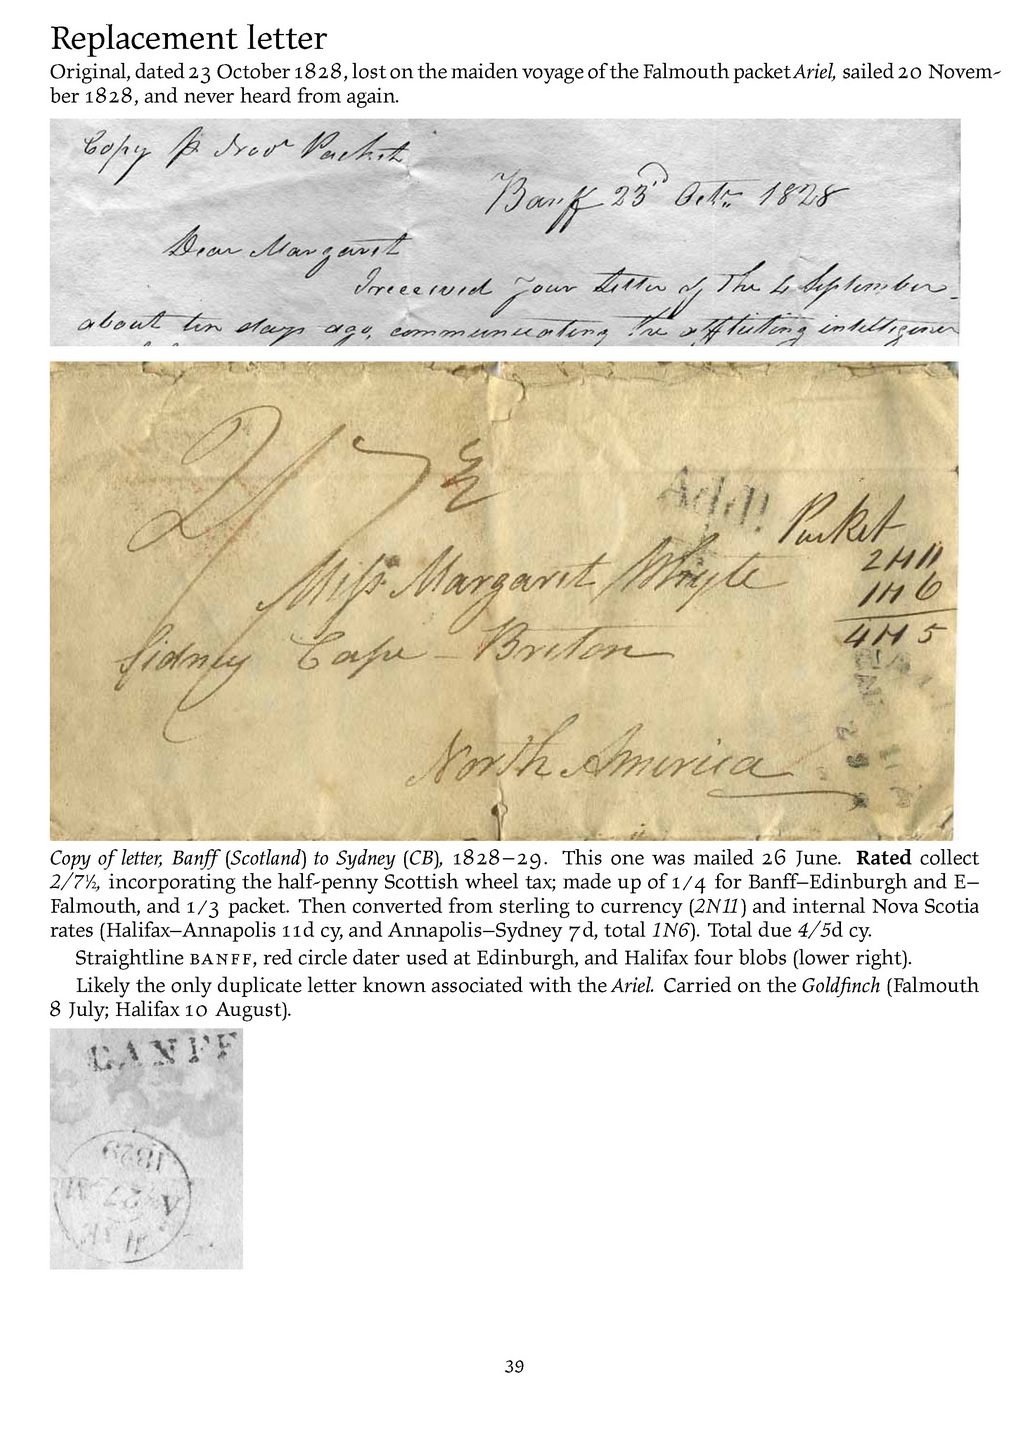 Replacement letter
Original, dated 23 October 1828, lost on the maiden voyage of the Falmouth packet Ariel, sailed 20 Novem-
ber 1828, and never heard from again.
Copy p Novr Packet
Banff 23d Octr 1828
Dear Margaret
I received your Letter of the 4 September
about ten days ago, communicating the afflicting intelligence
2/7½
Packet
2N11
Miss Margaret Whyte
1N6
4N5
Sidney Cape-Breton
North America
Copy of letter, Banff (Scotland) to Sydney (CB), 1828–29. This one was mailed 26 June. Rated collect
2/7½, incorporating the half-penny Scottish wheel tax; made up of 1/4 for Banff–Edinburgh and E–
Falmouth, and 1/3 packet. Then converted from sterling to currency (2N11) and internal Nova Scotia
rates (Halifax–Annapolis 11d cy, and Annapolis–Sydney 7d, total 1N6). Total due 4/5d cy.
Straightline BANFF, red circle dater used at Edinburgh, and Halifax four blobs (lower right).
Likely the only duplicate letter known associated with the Ariel. Carried on the Goldfinch (Falmouth
8 July; Halifax 10 August).
BANFF
1829
27
39